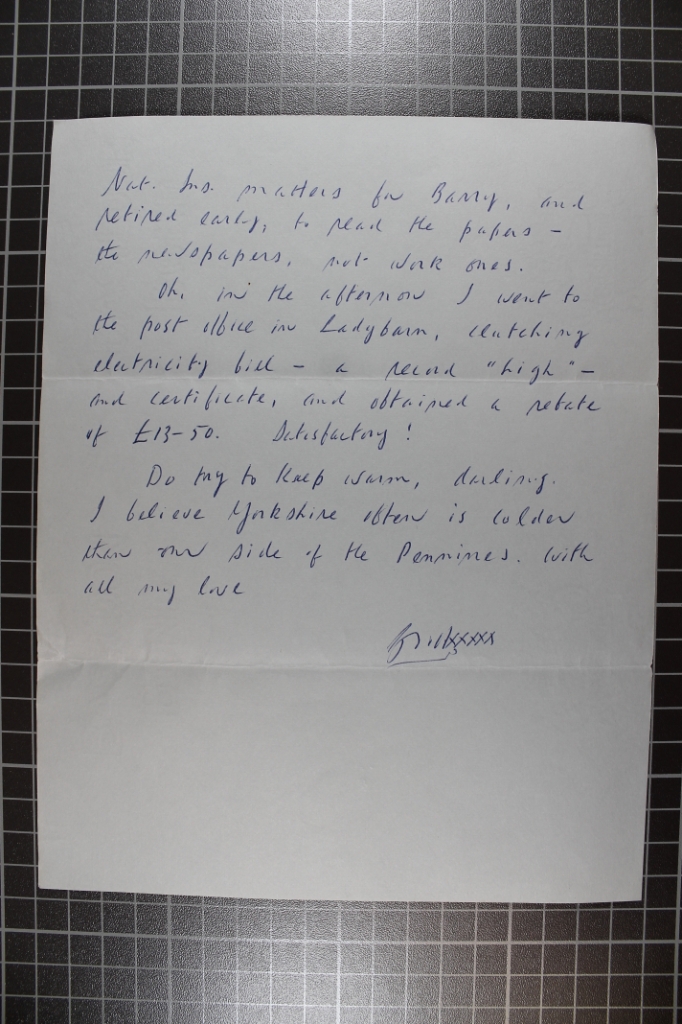 Nat. Ins. matters for Barry, and
retired early, to read the papers –
the newspapers, not work ones.
Oh, in the afternoon I went to
the post office in Ladybarn, clutching
electricity bill – a record "high" –
and certificate, and obtained a rebate
of £13-50. Satisfactory!
Do try to keep warm, darling.
I believe Yorkshire often is colder
than our side of the Pennines. With
all my love
xxxxx